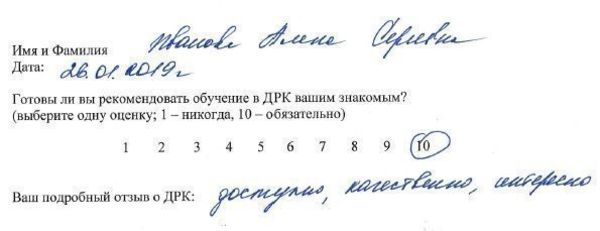 Имя и Фамилия Иванова Алена Сергеевна
Дата: 26.01.2019г
Готовы ли вы рекомендовать обучение в ДРК вашим знакомым?
(выберите одну оценку; 1 – никогда, 10 – обязательно)
1 2 3 4 5 6 7 8 9 10
Ваш подробный отзыв о ДРК: доступно, качественно, интересно